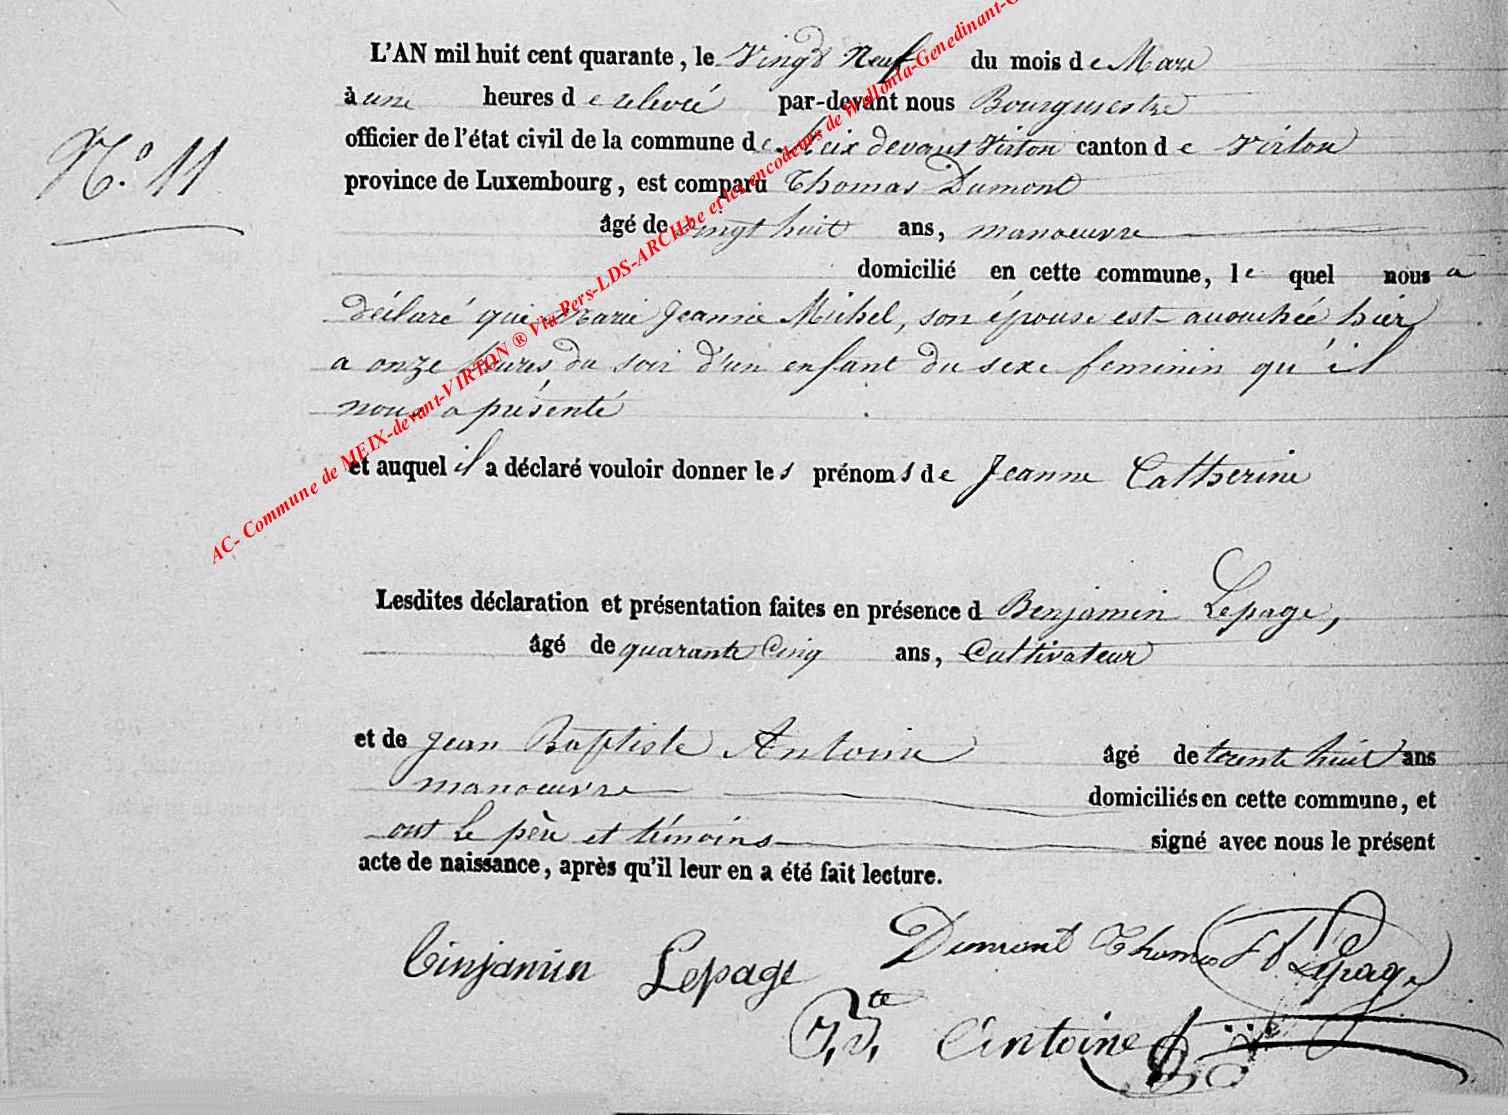 L'AN mil huit cent quarante, le vingt Neuf du mois de Mars
à une heures de relevée par-devant nous Bourgmestre
officier de l'état civil de la commune de Meix devant Virton canton de Virton
province de Luxembourg, est comparu Thomas Dumont
âgé de vingt huit ans, manoeuvre
domicilié en cette commune, le quel nous a
déclaré que Marie Jeanne Michel, son épouse est accouchée hier
a onze heures du soir d'un enfant du sexe feminin qu'il
nous a présenté
et auquel il a déclaré vouloir donner les prénoms de Jeanne Catherine
N.° 11
Lesdites déclaration et présentation faites en présence d Benjamin Lepage,
âgé de quarante Cinq ans, Cultivateur
et de Jean Baptiste Antoine âgé de trente huit ans
manoeuvre domiciliés en cette commune, et
ont le père et témoins signé avec nous le présent
acte de naissance, après qu'il leur en a été fait lecture.
Binjamin Lepage Dumont Thomas Lepage
J. Bte Antoine
AC- Commune de MEIX-devant-VIRTON ® Via Pers-LDS-ARCH.be et les encodeurs de Wallonia-Genedinant-G